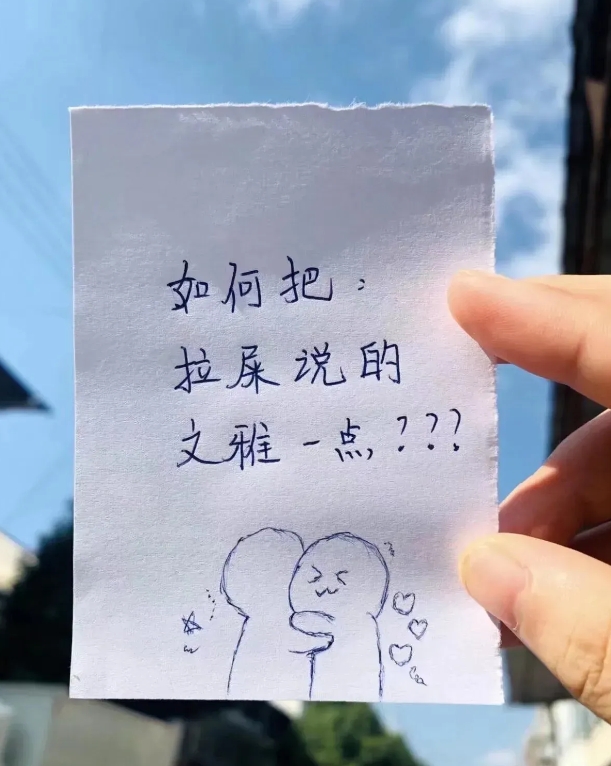 如何把：
拉屎说的
文雅一点，？？？